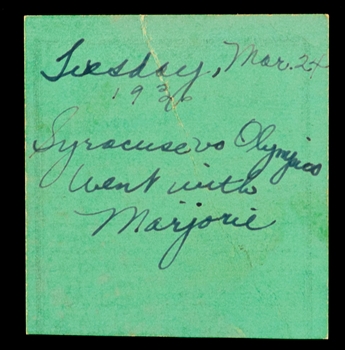 Tuesday, Mar. 24
1936
Syracuse vs Olympics
Went with
Marjorie